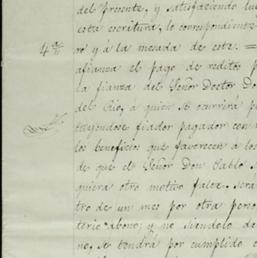 del presente, y satisfaciendo lu
esta escritura, lo correspondiente
4.ª ré y á la mesada de este.
afianza el pago de reditos p
la fianza del Señor Doctor Do
del Rio, a quien se ocurrirá p
fiador pagador con
los beneficios que favorecen á los
de que el Señor Don Pablo
quiera otro motivo falte, será
tro de un mes por otra perso
terio abono; y no siendolo de
no, se tendrá por cumplido e